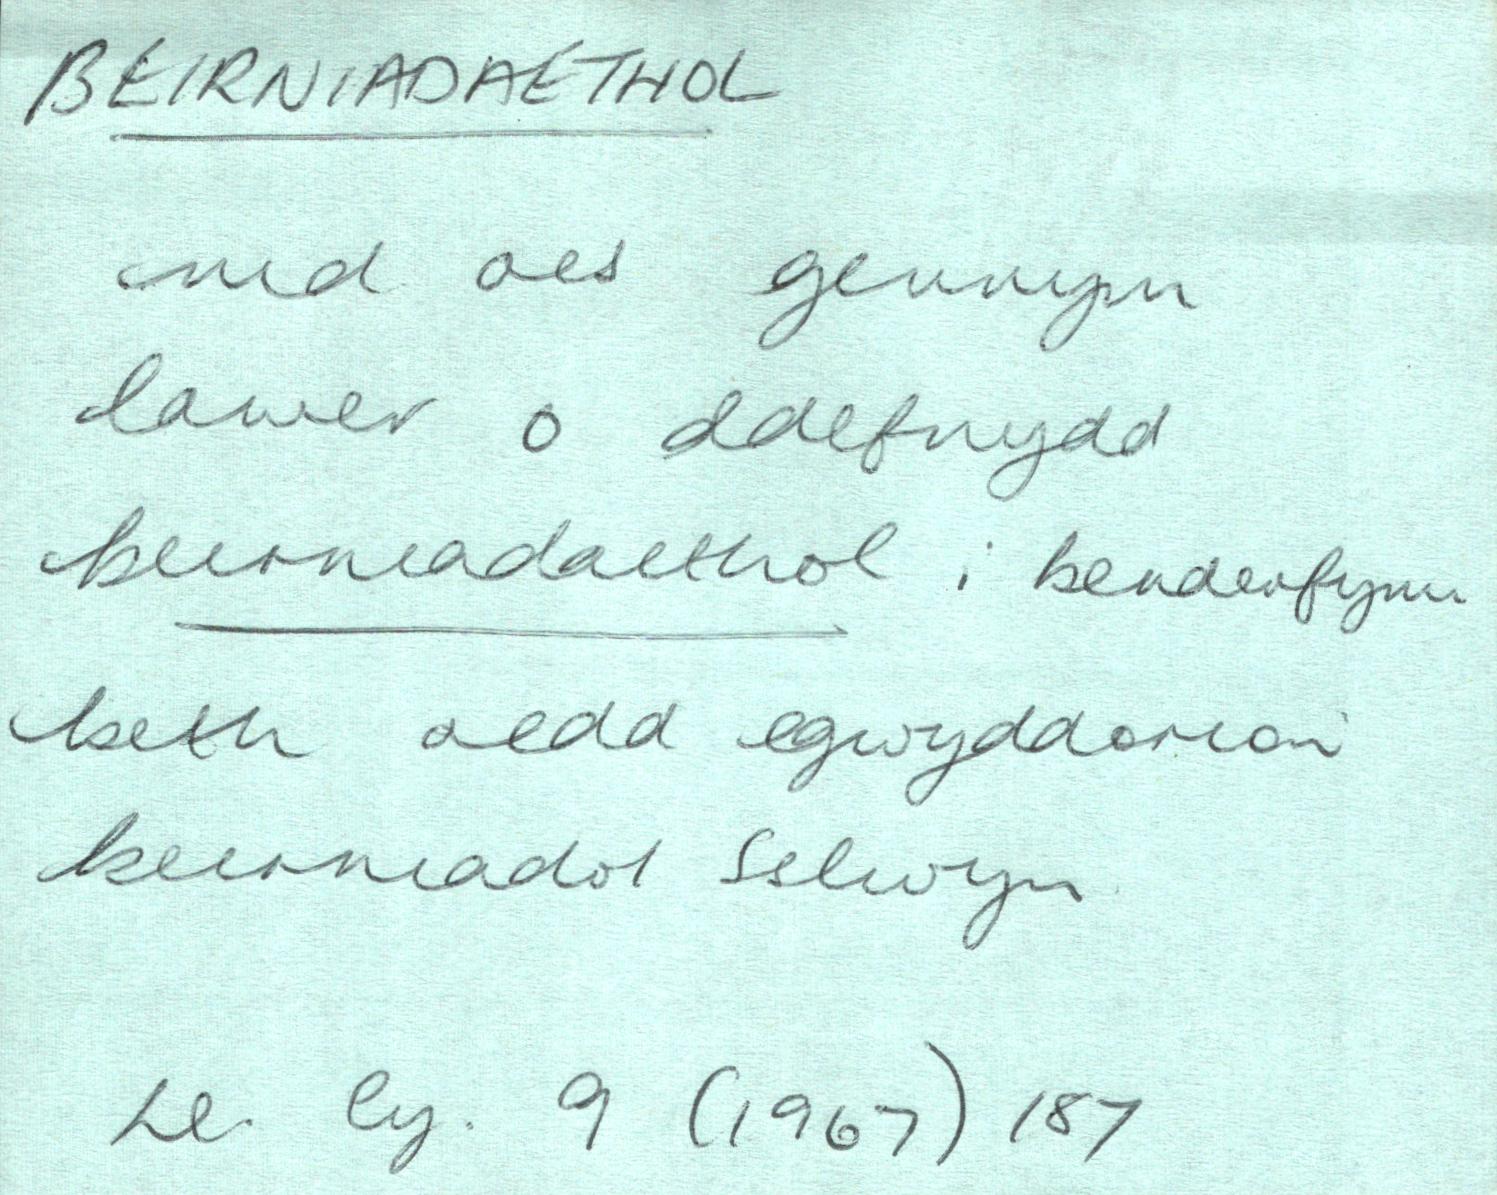 BEIRNIADAETHOL
nid oes gennym
lawer o ddefnydd
beirniadaethol i benderfynu
beth oedd egwyddorion
beirniadol Selwyn
Ll. Cy. 9 (1967) 187